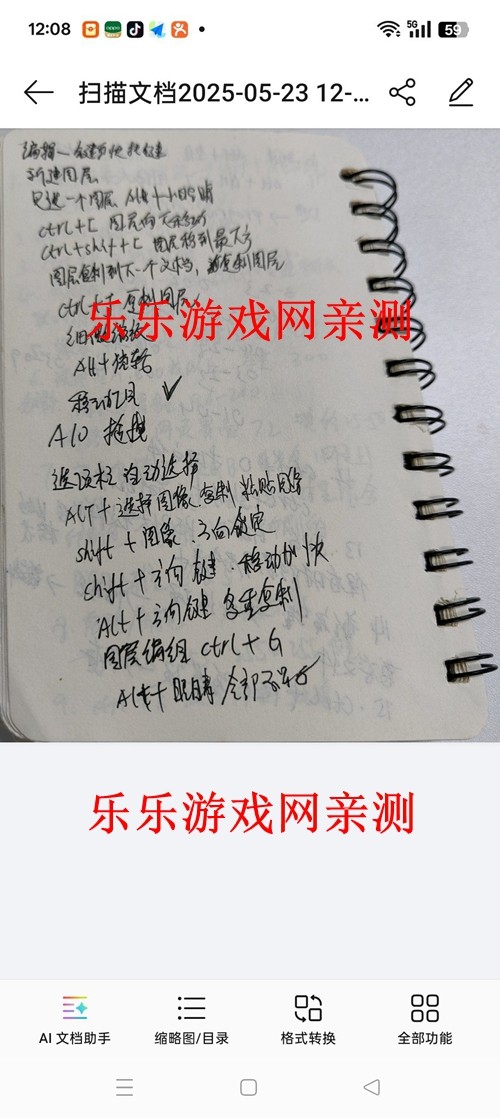 12:08
5G
59
扫描文档2025-05-23 12-...
编辑一 键盘快捷键
新建图层
只选一个图层 Alt+
ctrl+[ 图层向下移动
ctrl+shift+[ 图层移到最下方
图层复制到下一个文档,复制图层
ctrl+J 复制图层
乐乐游戏网亲测
Alt+滚轮
移动工具 ✓
选项栏 自动选择
ALT+选择图像 复制 粘贴图像
shift+图像 方向锁定
shift+方向键 移动加快
Alt+方向键 多重复制
图层编组 ctrl+G
Alt+眼睛 全部不显
乐乐游戏网亲测
AI 文档助手
缩略图/目录
格式转换
全部功能